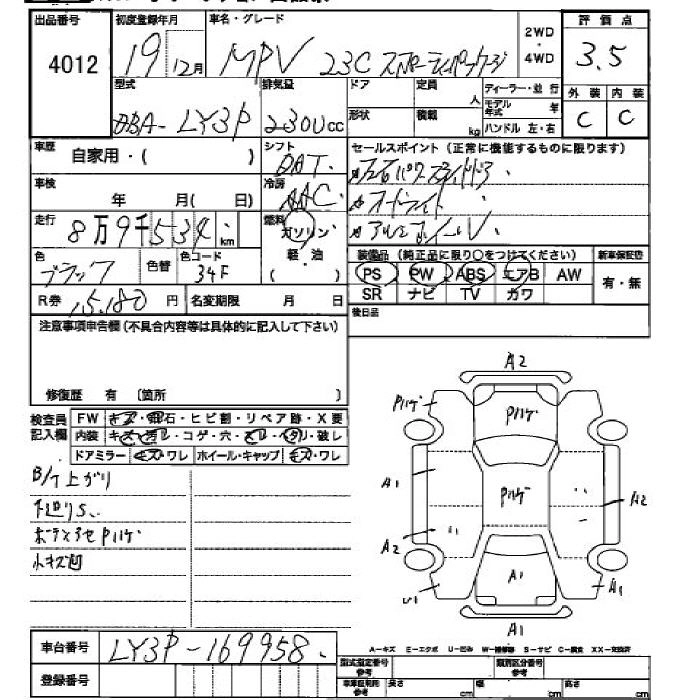 出品番号 初度登録年月 車名・グレード 2WD・4WD 評価点
4012 19年 12月 MPV 23C スポーティパッケージ 3.5
型式 排気量 ドア 定員 人 ディーラー・並行 外装 内装
DBA-LY3P 2300cc 形状 積載 kg モデル年式 年 C C
ハンドル 左・右
車歴 自家用・( ) シフト DAT セールスポイント(正常に機能するものに限ります)
車検 年 月( 日) 冷房 AAC
オートライト
走行 8万9千534km 燃料 ガソリン・軽油 ( ) アルミホイール
色 ブラック 色替 色コード 34F 装備品(純正品に限り○をつけてください) 新車保証書
PS PW ABS エアB AW 有・無
R券 15,180円 名変期限 月 日 SR ナビ TV カワ
後日品
注意事項申告欄(不具合内容等は具体的に記入して下さい)
修復歴 有 〔箇所 〕
検査員記入欄 FW キズ・飛石・ヒビ割・リペア跡・X要
内装 キズ・汚レ・コゲ・穴・スレ・ヘタリ・破レ
ドアミラー キズ・ワレ ホイール・キャップ キズ・ワレ
B/T上がり
下廻りS
ボデー色アセPハゲ
小キズ凹
A2
Pハゲ Pハゲ
A1 Pハゲ A2
A2
A1 A1
A1
車台番号 LY3P-169958
A-キズ E-エクボ U-凹み W-補修跡 S-サビ C-腐食 XX-交換済
登録番号 型式指定番号 参考 類別区分番号 参考
車車証明用 参考 長さ cm 幅 cm 高さ cm